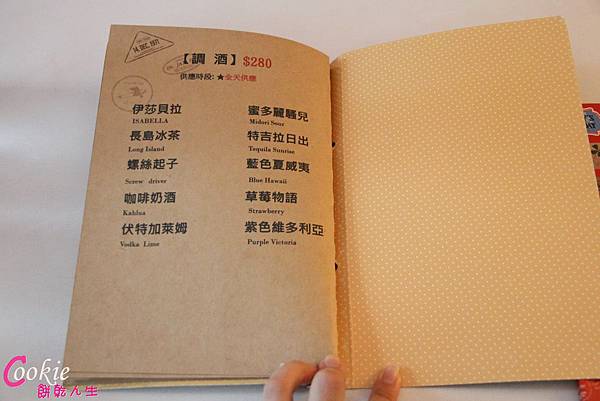 14. DEC. 1971
【調 酒】$280
供應時段: ★全天供應
伊莎貝拉
ISABELLA
長島冰茶
Long Island
螺絲起子
Screw driver
咖啡奶酒
Kahlua
伏特加萊姆
Vodka Lime
蜜多麗騷兒
Midori Sour
特吉拉日出
Tequila Sunrise
藍色夏威夷
Blue Hawaii
草莓物語
Strawberry
紫色維多利亞
Purple Victoria
Cookie
餅乾人生